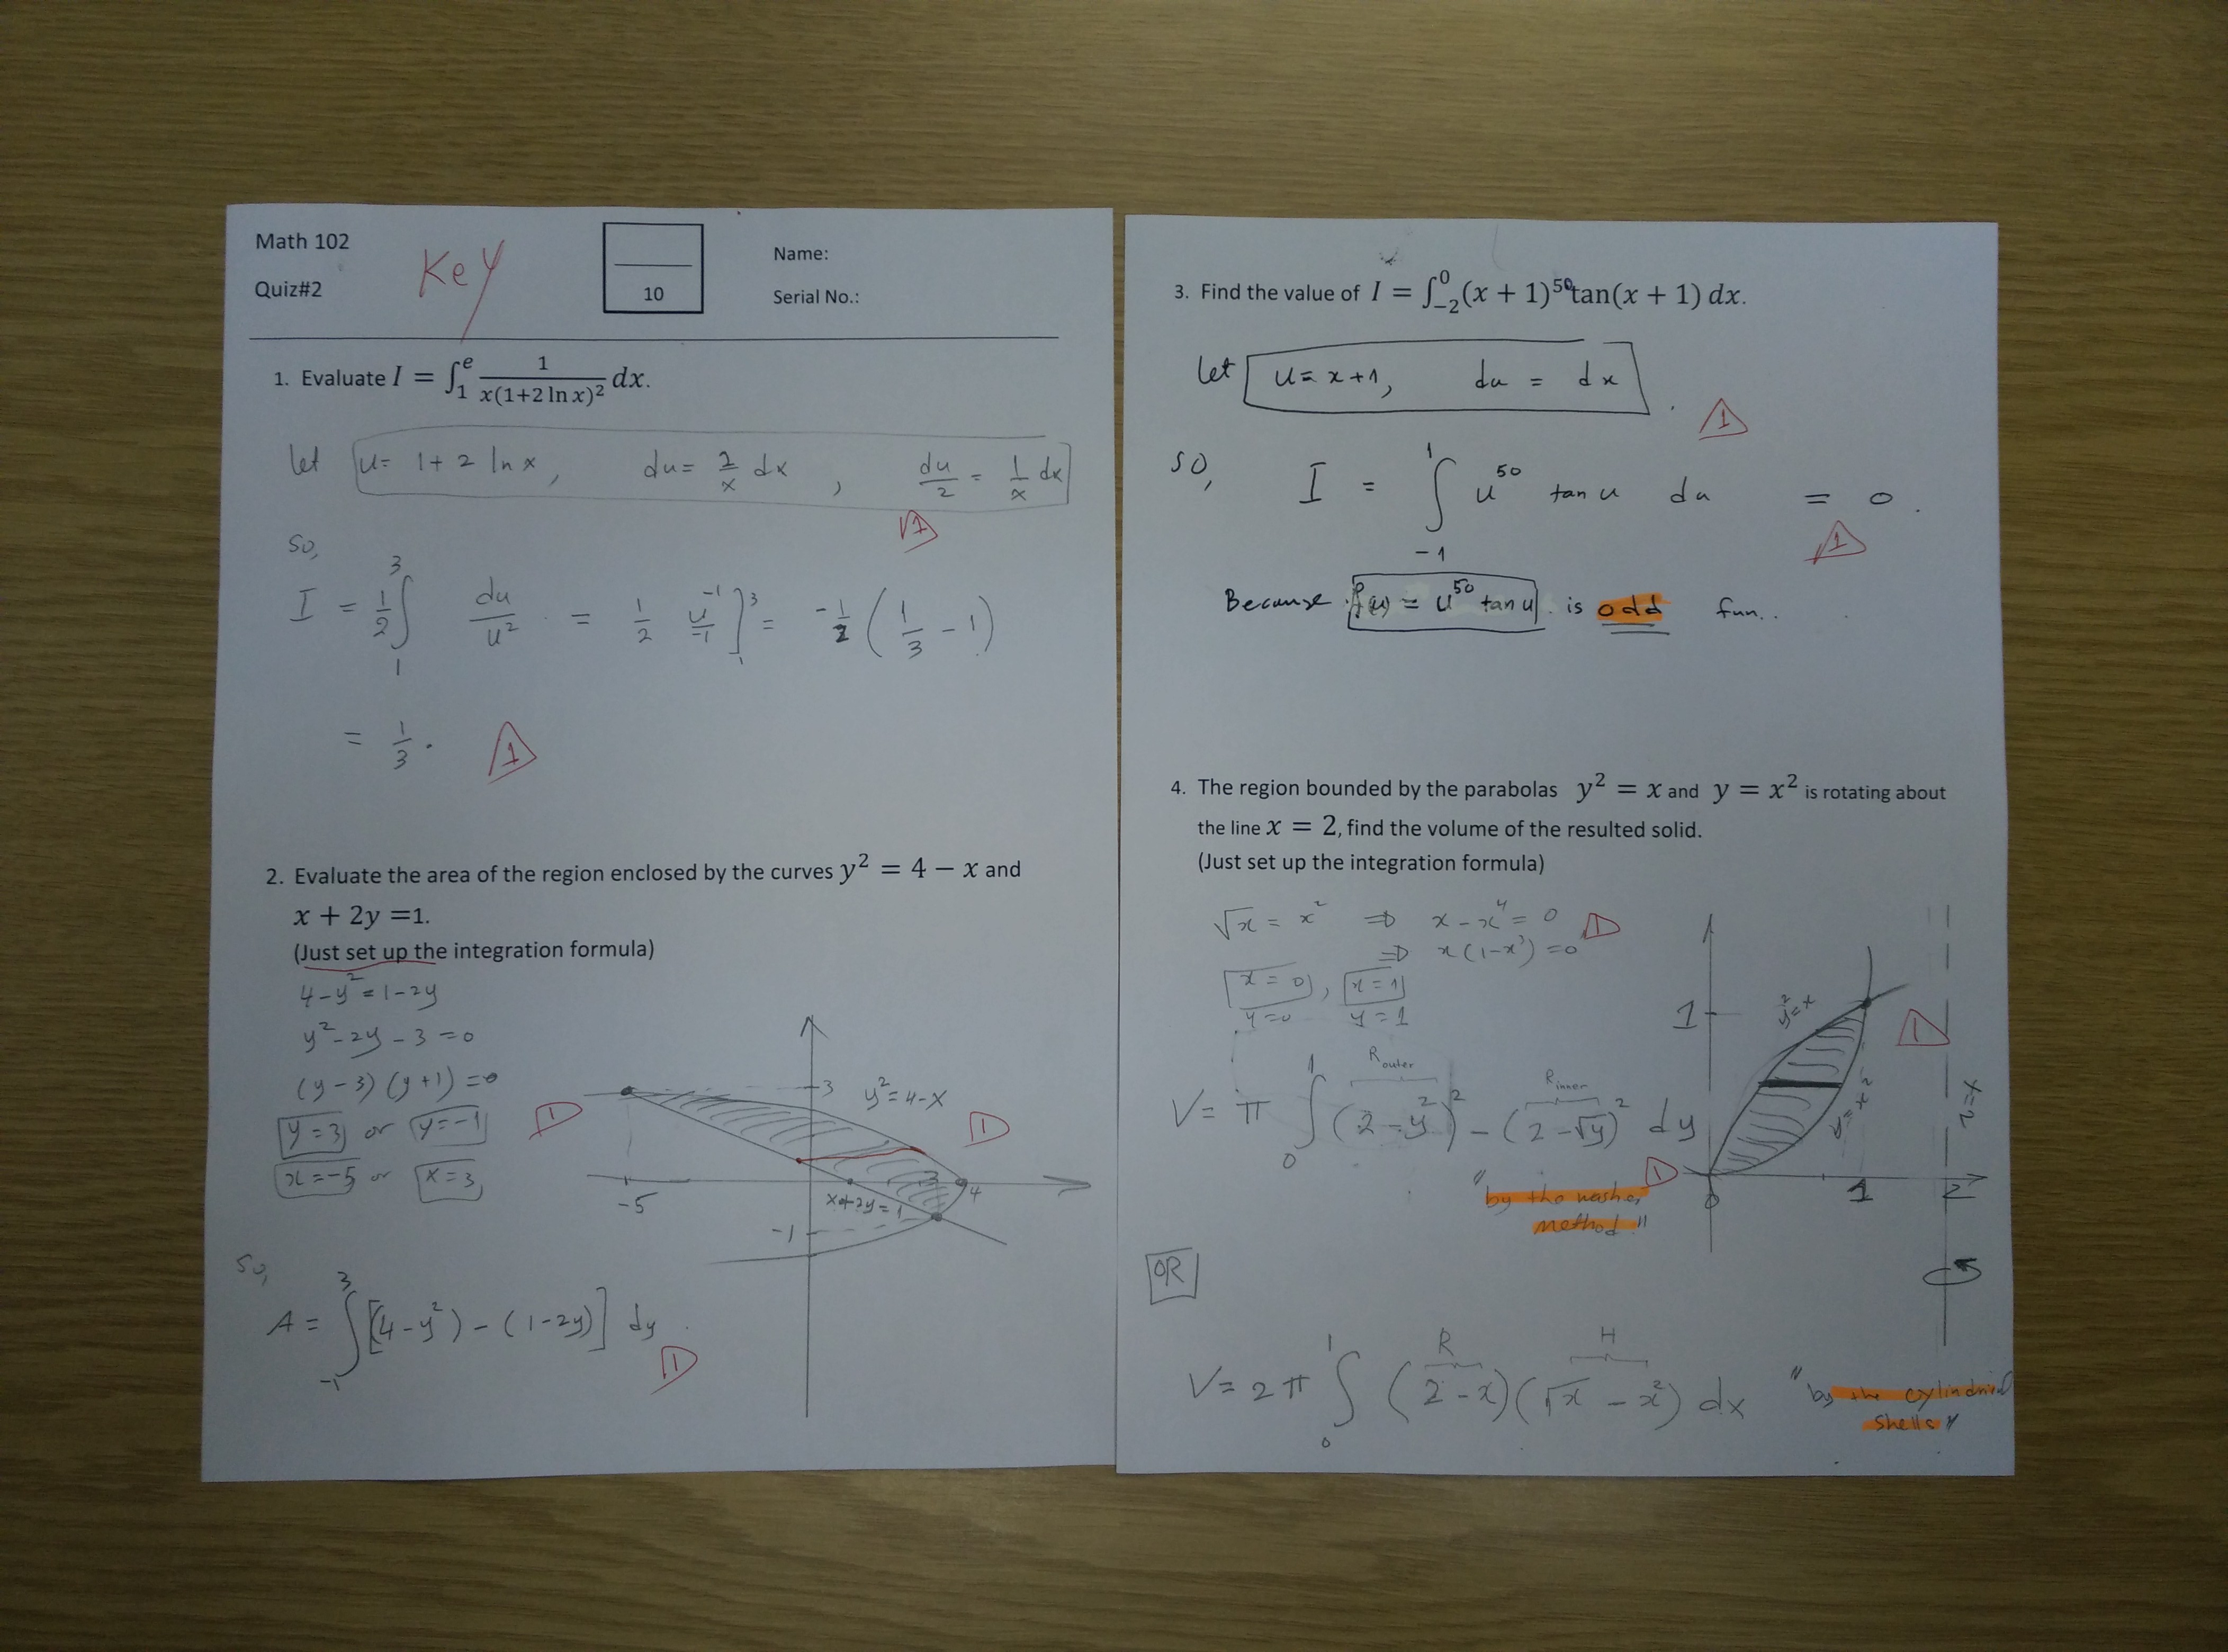 Math 102
Key
Quiz#2
10
Name:
Serial No.:
1. Evaluate I = ∫₁ᵉ 1/(x(1+2 ln x)²) dx.
let u = 1 + 2 ln x, du = 2/x dx, du/2 = 1/x dx
1
so,
I = 1/2 ∫₁³ du/u² = 1/2 u⁻¹/-1 ]₁³ = -1/2 (1/3 - 1)
= 1/3. 1
2. Evaluate the area of the region enclosed by the curves y² = 4 − x and
x + 2y =1.
(Just set up the integration formula)
4-y² = 1-2y
y² - 2y - 3 = 0
(y-3)(y+1) = 0
y=3 or y=-1 1
x=-5 or x=3
3
y²=4-x
1
-5
3
4
x+2y=1
-1
So,
A = ∫₋₁³ [(4-y²) - (1-2y)] dy.
1
3. Find the value of I = ∫₋₂⁰ (x + 1)⁵⁰tan(x + 1) dx.
let u = x+1, du = dx.
1
so, I = ∫₋₁¹ u⁵⁰ tan u du = 0.
1
Because f(u) = u⁵⁰ tan u. is odd fun..
4. The region bounded by the parabolas y² = x and y = x² is rotating about
the line x = 2, find the volume of the resulted solid.
(Just set up the integration formula)
√x = x² ⇒ x - x⁴ = 0 1
⇒ x(1-x³) = 0
x=0, x=1
y=0 y=1
1
y²=x
1
y=x²
x=2
0
1
2
Router Rinner
V = π ∫₀¹ (2-y²)² - (2-√y)² dy
1
"by the washer
method"
OR
R H
V = 2π ∫₀¹ (2-x)(√x - x²) dx
"by the cylindrical
shells"